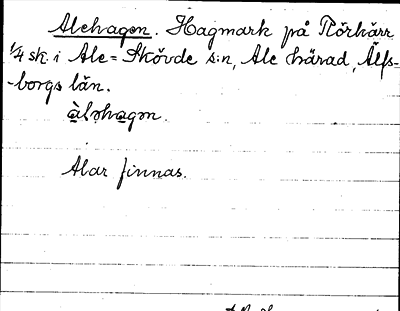 Alehagen. Hagmark på Rörkärr
1/4 sk. i Ale=Skövde s:n, Ale härad, Älfs-
borgs län.
àləhagən.
Alar finnas.